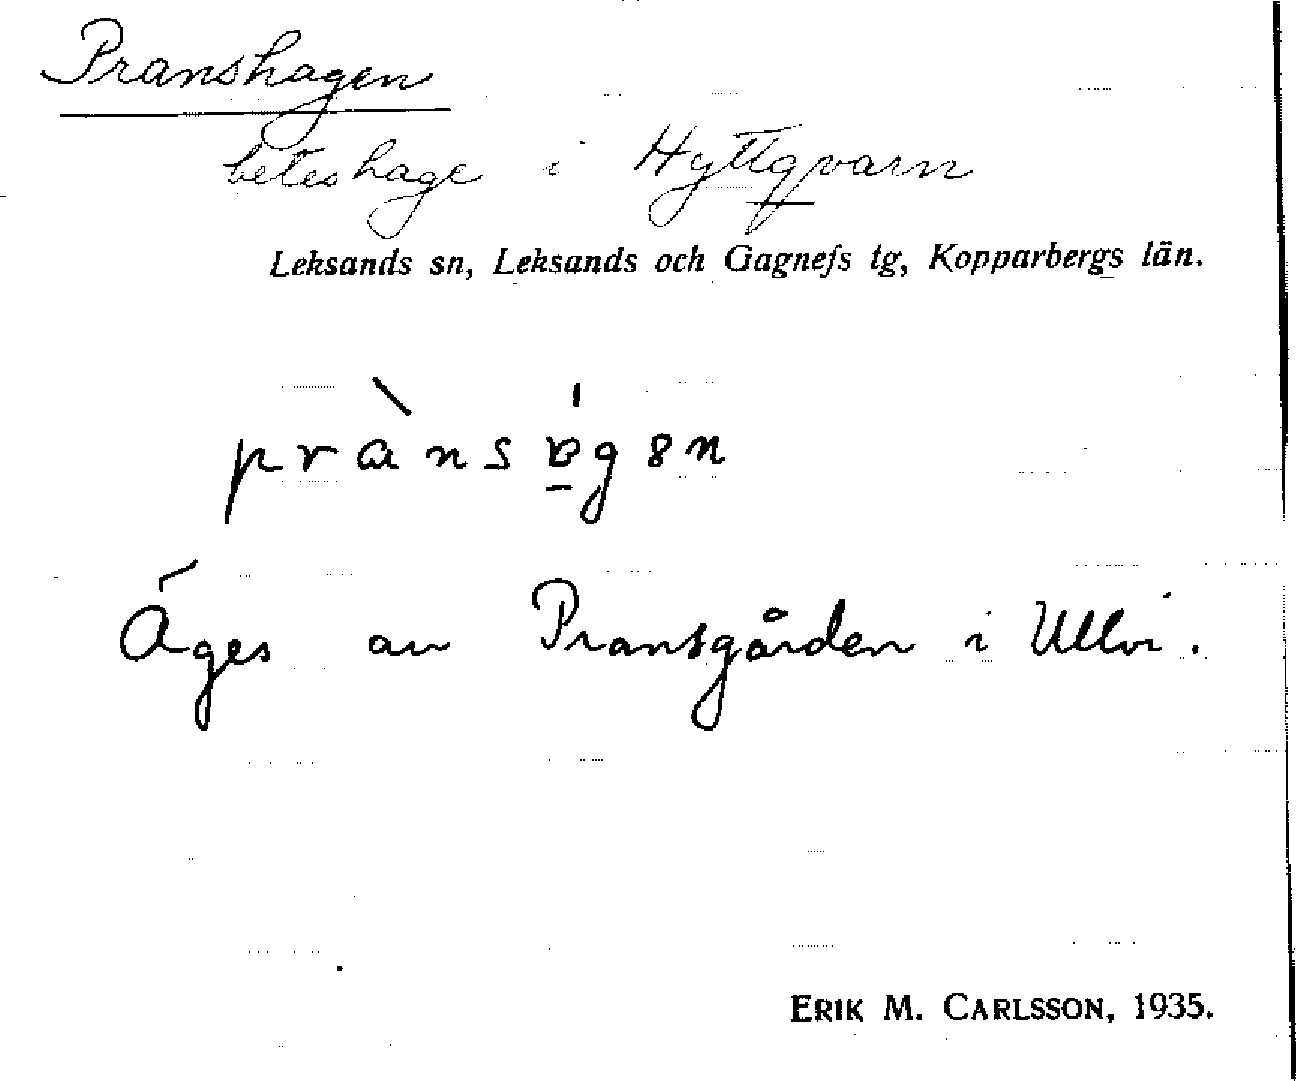 Pranshagen
beteshage i Hyttqvarn
Leksands sn, Leksands och Gagnefs tg, Kopparbergs län.
Äges av Pransgården i Ullvi.
ERIK M. CARLSSON, 1935.